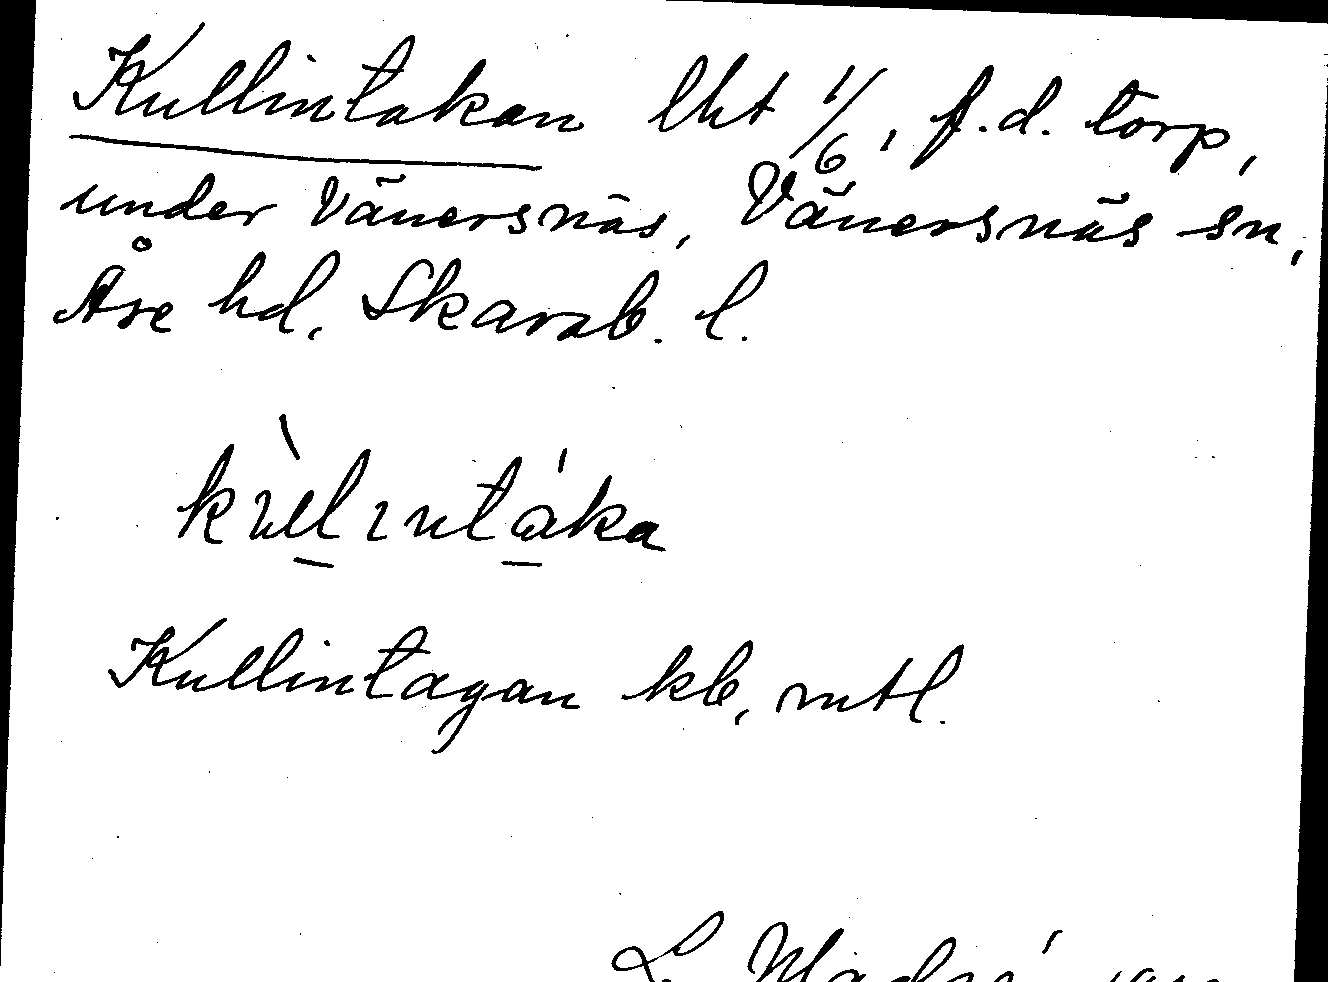 Kullintakan lht 1/6, f.d. torp,
under Vänersnäs, Vänersnäs sn,
Åse hd, Skarab. l.
Kullintagan kb, mtl.
L.